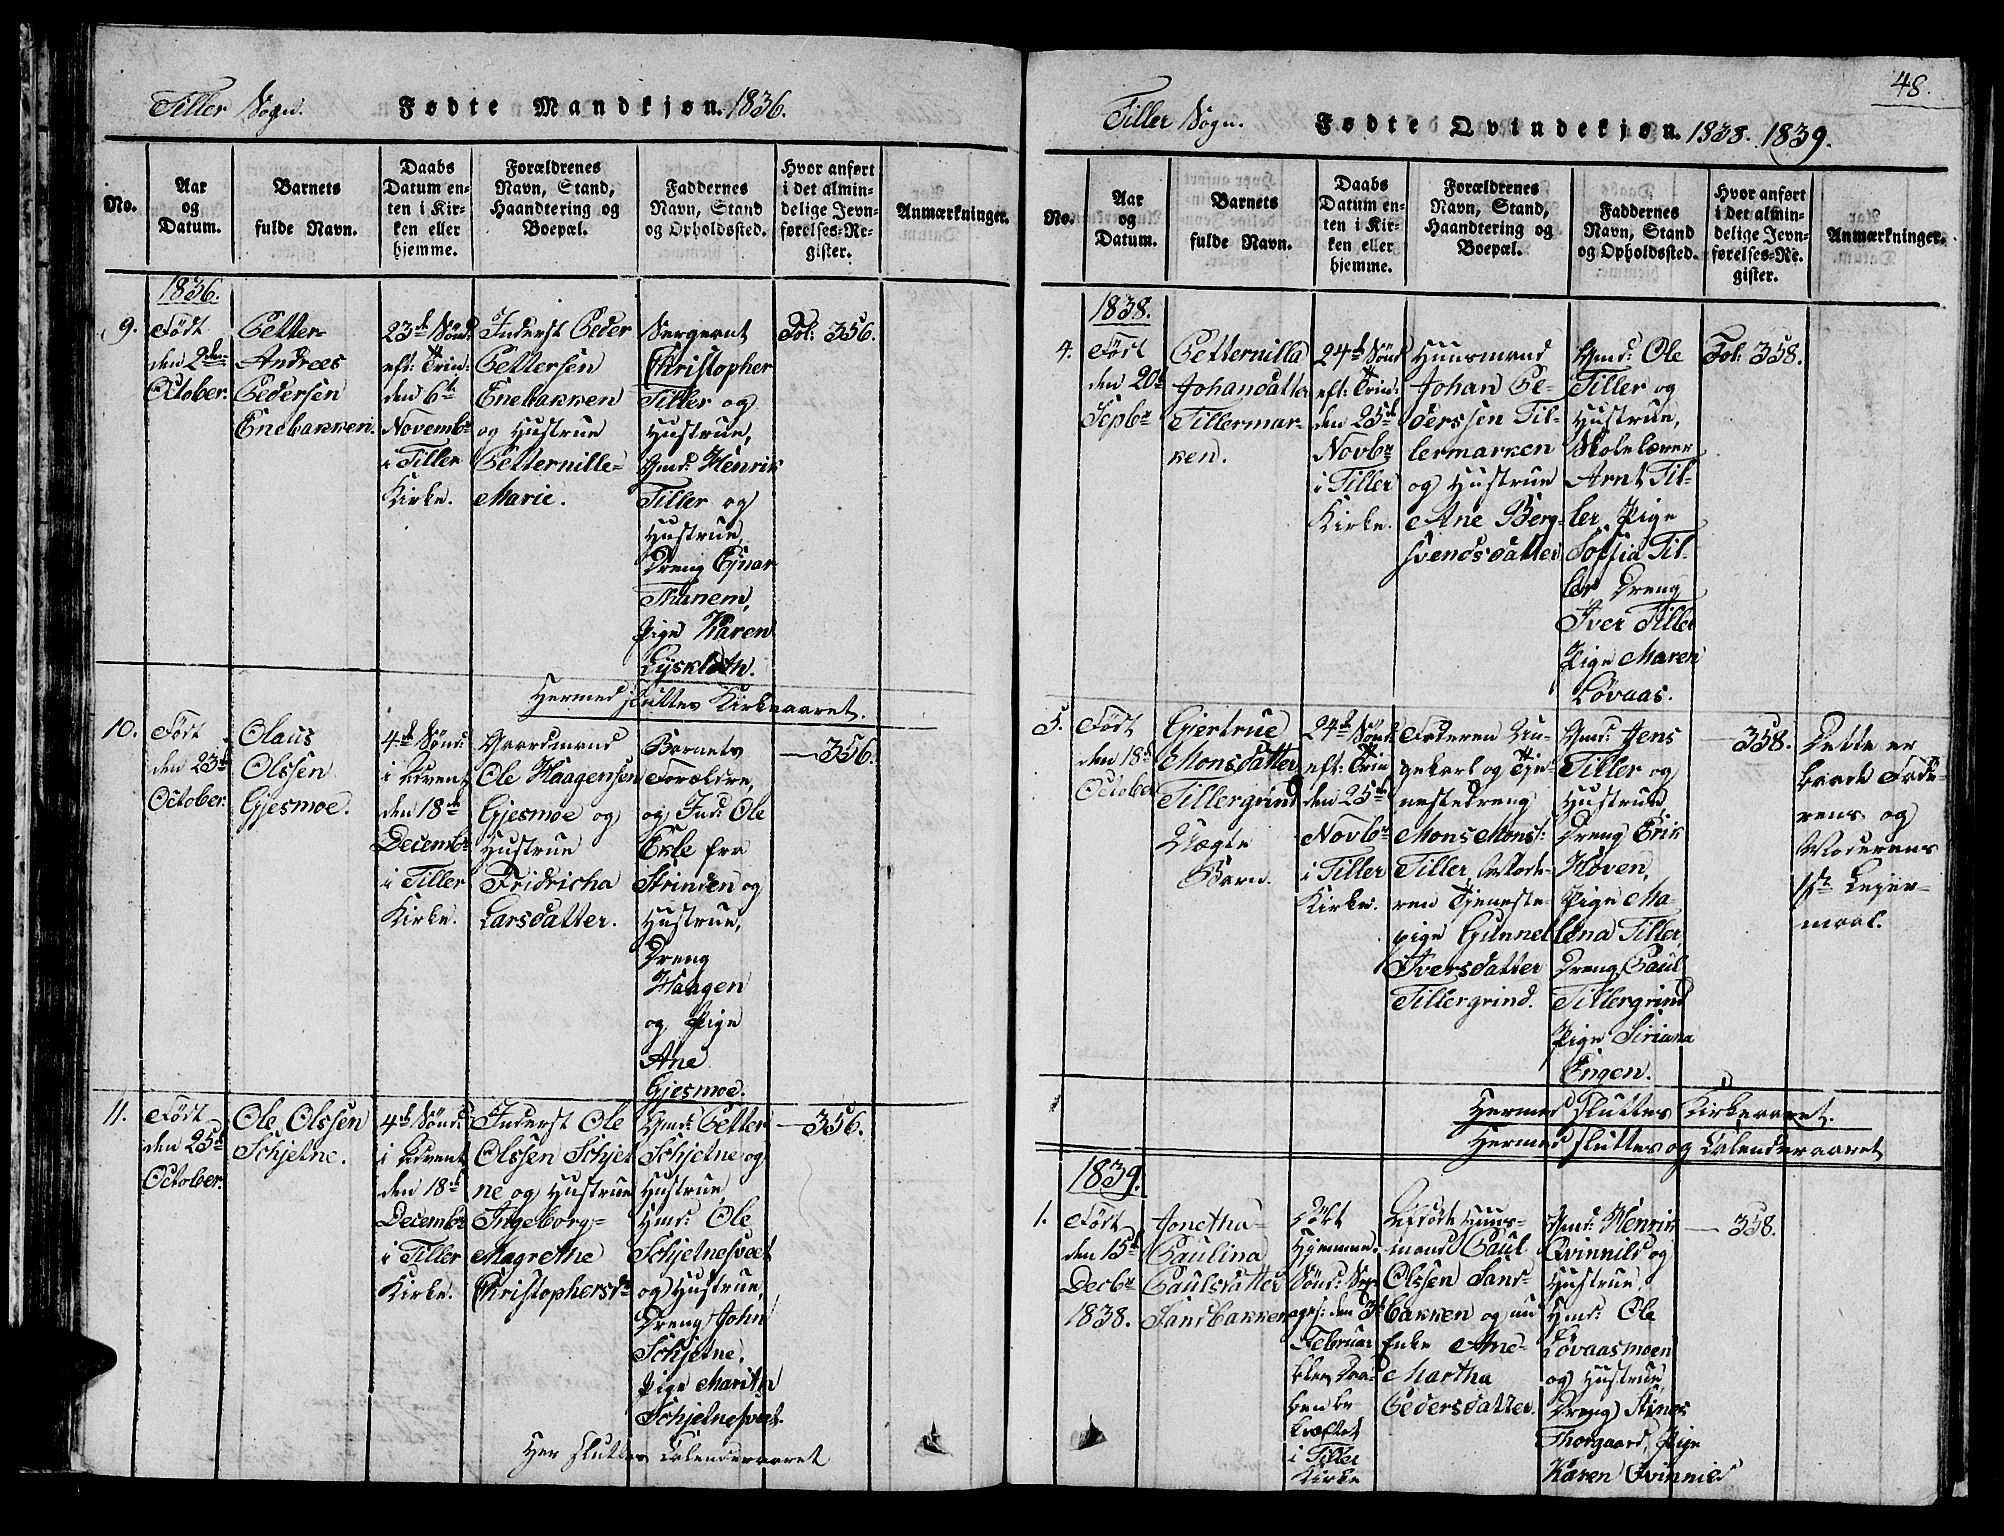 Tiller Sogn. Fødte Mandkjøn. 1836.
No.
Aar
og
Datum.
Barnets
fulde Navn.
Daabs
Datum en-
ten i Kir-
ken eller
hjemme.
Forældrenes
Navn, Stand,
Haandtering og
Boepæl.
Faddernes
Navn, Stand
og Opholdssted.
Hvor anført
i det almin-
delige Jevn-
førelses-Re-
gister.
Anmærkninger.
1836.
9.
Født
den 2den
October.
Petter
Andreas
Pedersen
Enebakken.
23de Sønd:
eft: Trin:
den 6te
Novembr
i Tiller
Kirke.
Inderst Peder
Pettersen
Enebakken
og Hustrue
Petternille
Marie.
Sergeant
Christopher
Tiller og
Hustrue,
Gmd: Henrik
Tiller og
Hustrue,
Dreng Ejnar
Thanem,
Pige Karen
Lysklæth.
Fol: 356.
Hermed sluttes Kirkeaaret.
10.
Født
den 23de
October.
Olaus
Olssen
Gjesmoe.
4de Sønd:
i Advent
den 18de
Decembr
i Tiller
Kirke.
Gaardmand
Ole Haagensen
Gjesmoe og
Hustrue
Fridricha
Larsdatter.
Barnets
Forældre,
og Ind: Ole
Ekle fra
Strinden og
Hustrue,
Dreng
Haagen
og Pige
Ane
Gjesmoe.
— 356.
11.
Født
den 25de
October.
Ole Olssen
Schjetne.
4de Sønd:
i Advent
den 18de
Decembr
i Tiller
Kirke.
Inderst Ole
Olssen Schjet
ne og Hustrue
Ingeborg
Magrethe
Christophersd.
Gmd: Petter
Schjetne og
Hustrue,
Hmd: Ole
Schjetnesvæt
og Hustrue,
Dreng John
Schjetne,
Pige Marith
Schjetnesvæt.
— 356.
Her sluttes Calenderaaret
48.
Tiller Sogn. Fødte Qvindekjøn. 1838. 1839.
No.
Aar
og
Datum.
Barnets
fulde Navn.
Daabs
Datum en-
ten i Kir-
ken eller
hjemme.
Forældrenes
Navn, Stand,
Haandtering og
Boepæl.
Faddernes
Navn, Stand
og Opholdssted.
Hvor anført
i det almin-
delige Jevn-
førelses-Re-
gister.
Anmærkninger.
1838.
4.
Født
den 20de
Sepbr
Petternilla
Johandatter
Tillermar-
ken.
24de Sønd
eft: Trin:
den 25de
Novbr
i Tiller
Kirke.
Huusmand
Johan Pe-
derssen Til-
lermarken
og Hustrue
Ane Berg-
Svendsdatter
Gmd: Ole
Tiller og
Hustrue,
Skolelærer
Arnt Til-
ler, Pige
Soffia Til-
ler Dreng
Iver Tiller
Pige Maren
Løvaas.
Fol: 358.
5.
Født
den 18de
October
Gjertrue
Monsdatter
Tillergrind
Uægte
Barn.
24de Sønd:
eft: Trin
den 25de
Novbr
i Tiller
Kirke.
Faderen Un-
gekarl og Tje-
nestedreng
Mons Mons:
Tiller, Mode-
ren Tjeneste-
pige Gunnel
Iversdatter
Tillergrind.
Gmd: Jens
Tiller og
Hustrue
Dreng Erik
Hoven,
Pige Ma-
lena Tiller,
Dreng Paul
Tillergrind
Pige Siriana
Engen.
— 358.
Dette er
baade Fade-
rens og
Moderens
1ste Lejer-
maal.
Hermed sluttes Kirkeaaret.
Hermed sluttes og Calenderaaret
1839.
1.
Født
den 15de
Decbr
1838.
Jonetha
Paulina
Paulsdatter
Sandbakken
Døbt
Hjemme.
Sønd: Sep
ages: den 3de
Februar
blev Daa-
ben be-
kræftet
i Tiller
Kirke
Afdøde Huus-
mand Paul
Olssen Sand-
bakken og nu
Enke Ane
Martha
Pedersdatter.
Gmd: Henrik
Qvinnild og
Hustrue,
Hmd: Ole
Løvaasmoen
og Hustrue,
Dreng Stines
Thorgaard, Pige
Karen Qvinnild
— 358.